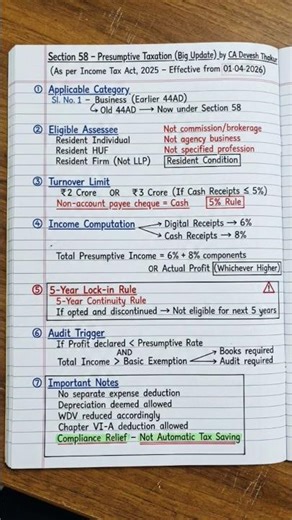 Section 58 – Presumptive Taxation (Big Update) by CA Devesh Thakur
(As per Income Tax Act, 2025 – Effective from 01·04·2026)
① Applicable Category
Sl. No. 1 – Business (Earlier 44AD)
↳ Old 44AD → Now under Section 58
② Eligible Assessee
Not commission/brokerage
Resident Individual
Not agency business
Resident HUF
Not specified profession
Resident Firm (Not LLP)
Resident Condition
③ Turnover Limit
₹2 Crore OR ₹3 Crore (If Cash Receipts ≤ 5%)
Non-account payee cheque = Cash
5% Rule
④ Income Computation
Digital Receipts → 6%
Cash Receipts → 8%
Total Presumptive Income = 6% + 8% components
OR Actual Profit (Whichever Higher)
⑤ 5-Year Lock-in Rule
5-Year Continuity Rule
If opted and discontinued → Not eligible for next 5 years
⑥ Audit Trigger
If Profit declared < Presumptive Rate
AND
Books required
Total Income > Basic Exemption
Audit required
⑦ Important Notes
No separate expense deduction
Depreciation deemed allowed
WDV reduced accordingly
Chapter VI-A deduction allowed
Compliance Relief – Not Automatic Tax Saving